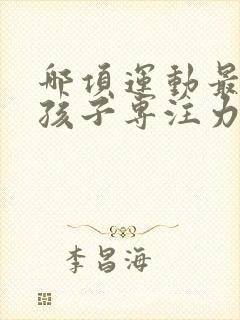 哪項運動最
孩子專注力
李昌海